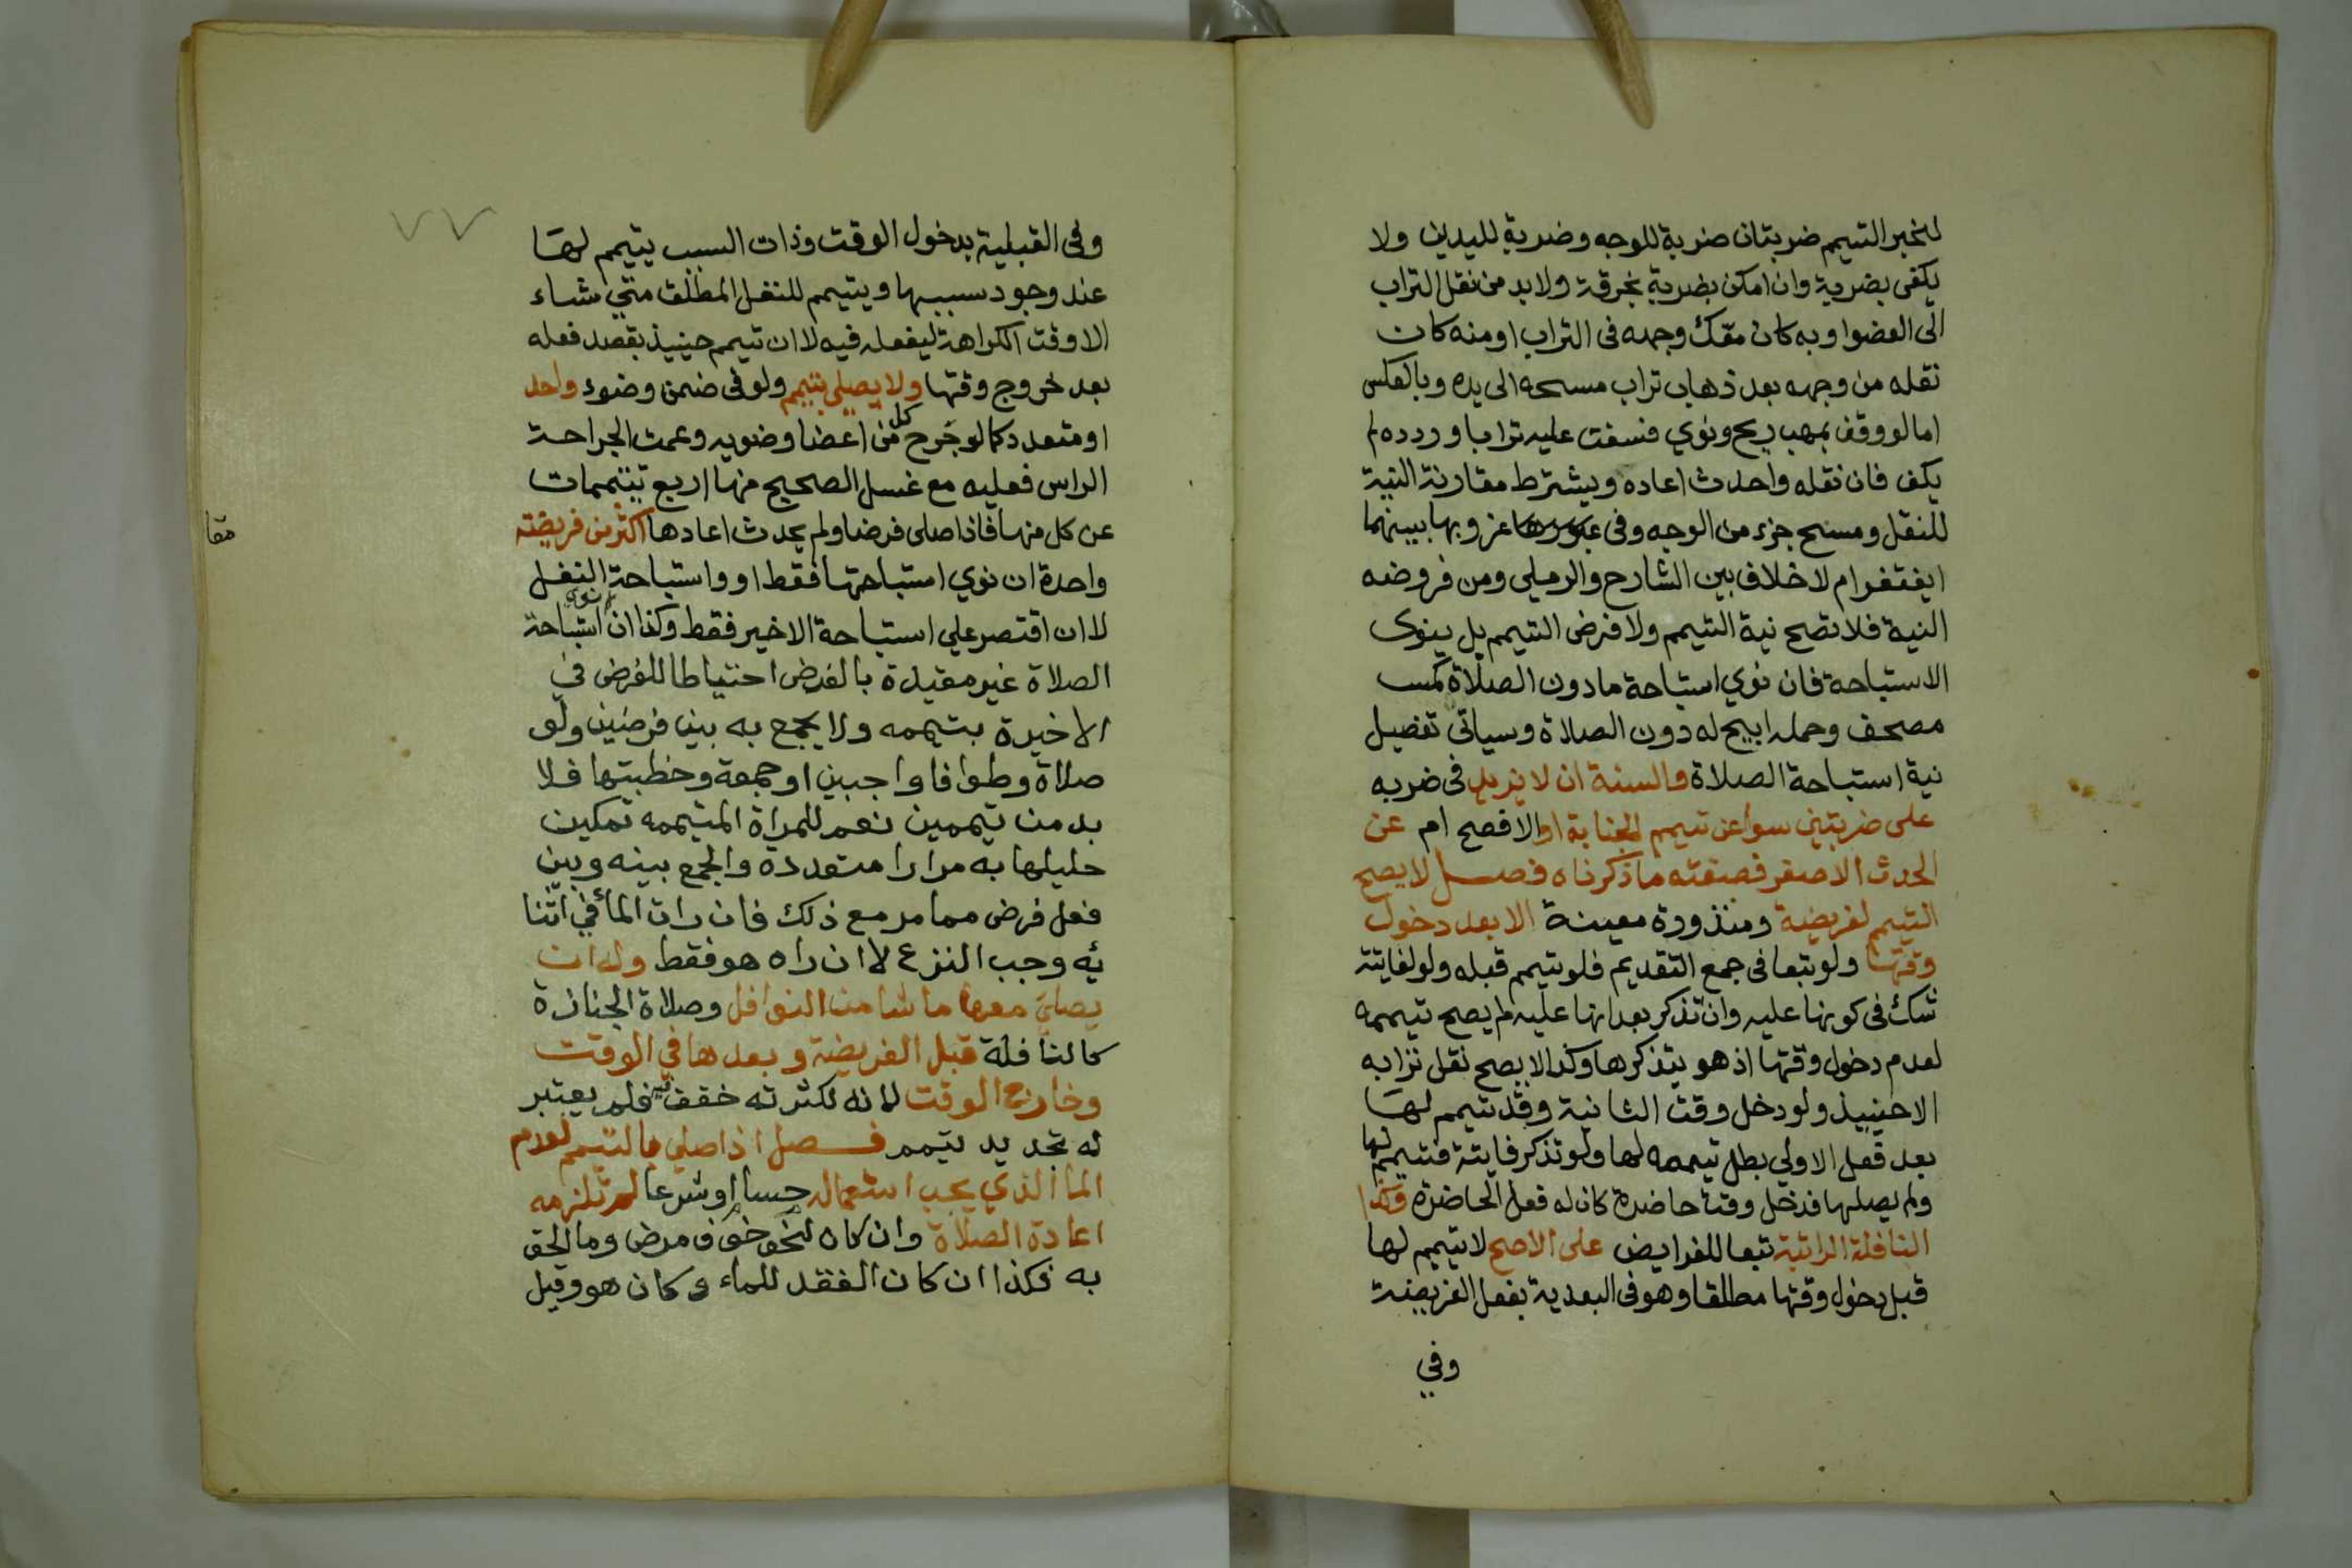 لخبر التيمم ضربتان ضربة للوجه وضربة لليدين ولا
يكفى بضربة وان امكن بضربة بخرقة ولا بد من نقل التراب
الى العضو او به كان معّك وجهه فى التراب او منه كان
نقله من وجهه بعد ذهاب تراب مسحه الى يده وبالعكس
اما لو وقف بمهب ريح ونوي فنسفت عليه ترابا وردده لم
يكف فان نقله واحدث اعاده ويشترط مقارنة النية
للنقل ومسح جزء من الوجه وفى عزوبها بينهما
ايغتفر ام لا خلاف بين الشارح والرملي ومن فروضه
النية فلا تصح نية التيمم ولا فرض التيمم بل ينوى
الاستباحة فان نوي استباحة ما دون الصلاة كمس
مصحف وحمله ابيح له دون الصلاة وسياتى تفصيل
نية استباحة الصلاة والسنة ان لا يزيد فى ضربه
على ضربتين سوا عن تيمم الجنابة او الافصح ام عن
الحدث الاصغر فصفته ما ذكرناه فصل لا يصح
التيمم لفريضة ومنذورة معينة الا بعد دخول
وقتها ولو تبعا فى جمع التقديم فلو تيمم قبله ولو لفايتة
شك فى كونها عليه وان تذكر بعد انها عليه لم يصح تيممه
لعدم دخول وقتها اذ هو بتذكرها وكذا لا يصح نقل ترابه
الا حينيذ ولو دخل وقت الثانية وقد تيمم لها
بعد فعل الاولي بطل تيممه لها ولو تذكر فايتة فتيمم لها
ولم يصلها فدخل وقت حاضرة كان له فعل الحاضرة وكذا
النافلة الراتبة تبعا للفرايض على الاصح لا يتيمم لها
قبل دخول وقتها مطلقا وهو فى البعدية بفعل الفريضة
وفي
٧٧
وفى القبلية بدخول الوقت وذات السبب يتيمم لها
عند وجود سببها ويتيمم للنفل المطلق متي شاء
الا وقت الكراهة ليفعله فيه لا ان تيمم حينيذ بقصد فعله
بعد خروج وقتها ولا يصلى بتيمم ولو فى ضمن وضوء واحد
او متعدد كما لو جرح كل من اعضا وضويه وعمت الجراحة
الراس فعليه مع غسل الصحيح منها اربع تيممات
عن كل منها فاذا صلى فرضا ولم يحدث اعادها اكثر من فريضته
واحدة ان نوي استباحتها فقط او واستباحة النفل
لا ان اقتصر علي استباحة الاخير فقط وكذا ان نوى استباحة
الصلاة غير مقيدة بالفرض احتياطا للفرض في
الاخيرة بتيممه ولا يجمع به بين فرضين ولو
صلاة وطوافا واجبين او جمعة وخطبتها فلا
بد من تيممين نعم للمراة المتيممه تمكين
حليلها به مرارا متعددة والجمع بينه وبين
فعل فرض مما مر مع ذلك فان رات الماء في اثنا
يه وجب النزع لا ان راه هو فقط وله ان
يصلي معها ما شا من النوافل وصلاة الجنازة
كالنافلة قبل الفريضة وبعدها في الوقت
وخارج الوقت لانه لكثرته خفف فيه فلم يعتبر
له تجديد تيمم فصل اذا صلي بالتيمم لعدم
الما الذي يجب استعماله حسا او شرعا لم تلزمه
اعادة الصلاة وان كان لنحو خوف مرض وما الحق
به فكذا ان كان الفقد للماء وكان هو وقيل